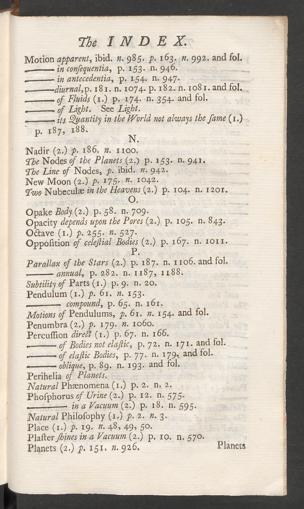 The INDEX.
Motion apparent, ibid. n. 985. p. 163. n. 992. and fol.
—— in consequentia, p. 153. n. 946.
—— in antecedentia, p. 154. n. 947.
—— diurnal, p. 181. n. 1074. p. 182. n. 1081. and fol.
—— of Fluids (1.) p. 174. n. 354. and fol.
—— of Light. See Light.
—— its Quantity in the World not always the same (1.)
p. 187, 188.
N.
Nadir (2.) p. 186. n. 1100.
The Nodes of the Planets (2.) p. 153. n. 941.
The Line of Nodes, p. ibid. n. 942.
New Moon (2.) p. 175. n. 1042.
Two Nubeculæ in the Heavens (2.) p. 104. n. 1201.
O.
Opake Body (2.) p. 58. n. 709.
Opacity depends upon the Pores (2.) p. 105. n. 843.
Octave (1.) p. 255. n. 527.
Opposition of celestial Bodies (2.) p. 167. n. 1011.
P.
Parallax of the Stars (2.) p. 187. n. 1106. and fol.
—— annual, p. 282. n. 1187, 1188.
Subtility of Parts (1.) p. 9. n. 20.
Pendulum (1.) p. 61. n. 153.
—— compound, p. 65. n. 161.
Motions of Pendulums, p. 61. n. 154. and fol.
Penumbra (2.) p. 179. n. 1060.
Percussion direct (1.) p. 67. n. 166.
—— of Bodies not elastic, p. 72. n. 171. and fol.
—— of elastic Bodies, p. 77. n. 179, and fol.
—— oblique, p. 89. n. 193. and fol.
Perihelia of Planets.
Natural Phænomena (1.) p. 2. n. 2.
Phosphorus of Urine (2.) p. 12. n. 575.
—— in a Vacuum (2.) p. 18. n. 595.
Natural Philosophy (1.) p. 2. n. 3.
Place (1.) p. 19. n. 48, 49, 50.
Plaster shines in a Vacuum (2.) p. 10. n. 570.
Planets (2.) p. 151. n. 926.
Planets